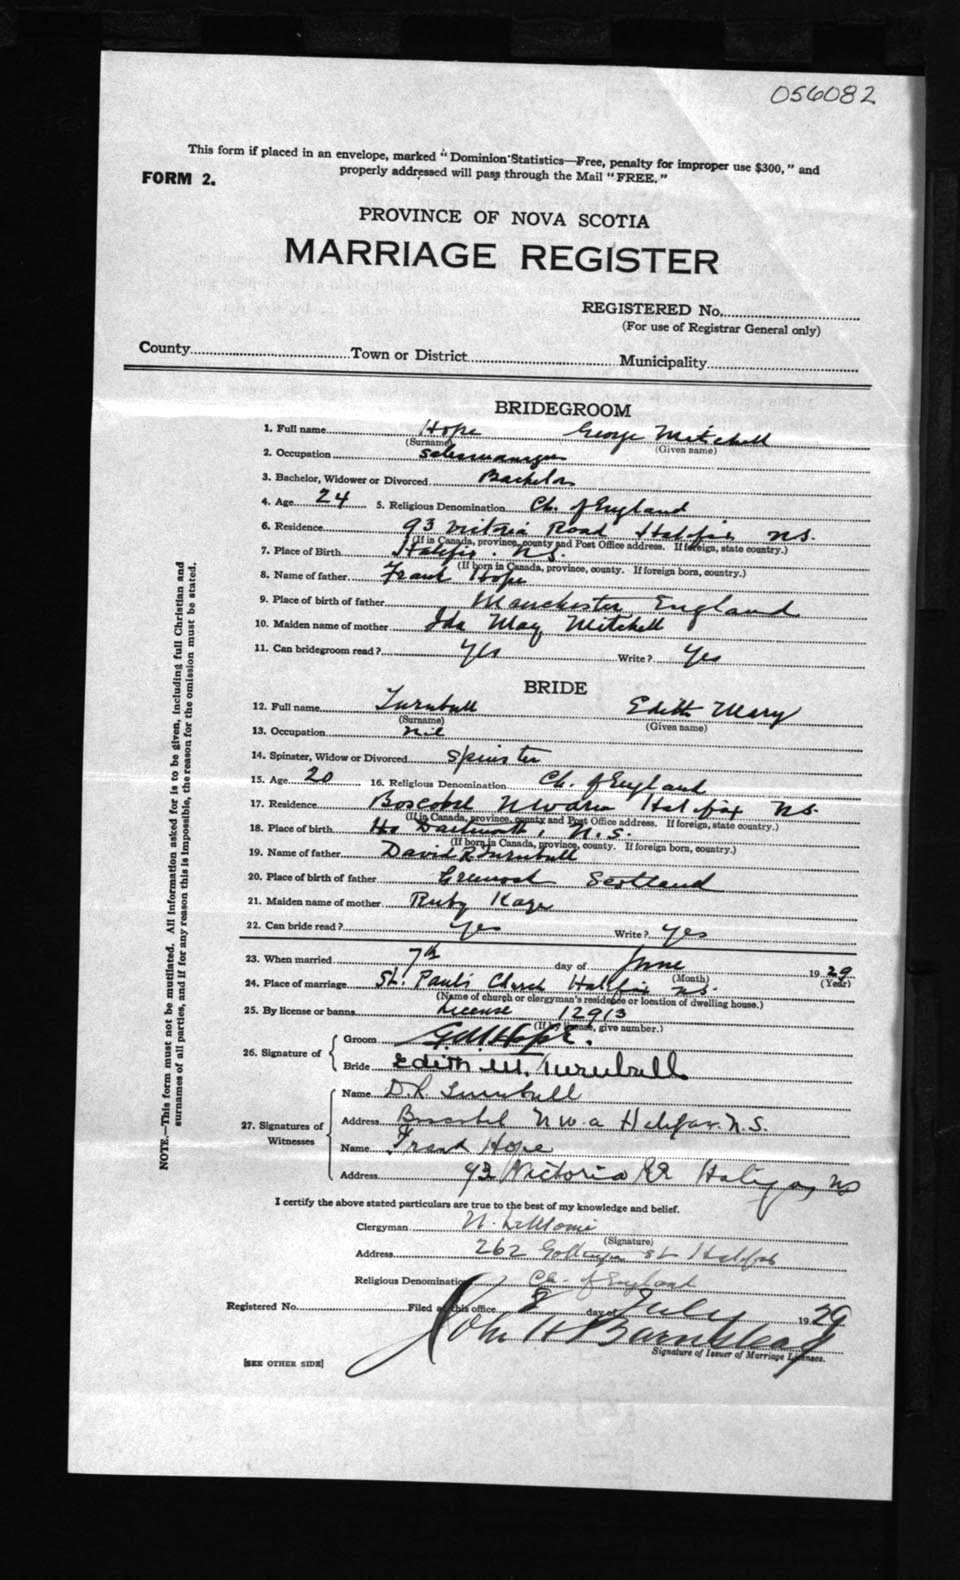 056082
This form if placed in an envelope, marked "Dominion Statistics—Free, penalty for improper use $300," and
properly addressed will pass through the Mail "FREE."
FORM 2.
PROVINCE OF NOVA SCOTIA
MARRIAGE REGISTER
REGISTERED No.
(For use of Registrar General only)
County Town or District Municipality
BRIDEGROOM
1. Full name Hope George Mitchell
(Surname) (Given name)
2. Occupation
3. Bachelor, Widower or Divorced Bachelor
4. Age 24 5. Religious Denomination Ch. of England
6. Residence 93 Victoria Road Halifax N.S.
(If in Canada, province, county and Post Office address. If foreign, state country.)
7. Place of Birth Halifax. N.S.
(If born in Canada, province, county. If foreign born, country.)
8. Name of father Frank Hope
9. Place of birth of father Manchester, England
10. Maiden name of mother Ida May Mitchell
11. Can bridegroom read? Yes Write? Yes
BRIDE
12. Full name Turnbull Edith Mary
(Surname) (Given name)
13. Occupation nil
14. Spinster, Widow or Divorced Spinster
15. Age 20 16. Religious Denomination Ch. of England
17. Residence Boscobel Halifax N.S.
(If in Canada, province, county and Post Office address. If foreign, state country.)
18. Place of birth Dartmouth, N.S.
(If born in Canada, province, county. If foreign born, country.)
19. Name of father David R Turnbull
20. Place of birth of father Greenock Scotland
21. Maiden name of mother Ruby Kaye
22. Can bride read? Yes Write? Yes
23. When married 7th day of June 1929
(Month) (Year)
24. Place of marriage St. Paul's Church Halifax N.S.
(Name of church or clergyman's residence or location of dwelling house.)
25. By license or banns License 12913
(If by license, give number.)
26. Signature of
Groom G M Hope.
Bride Edith M. Turnbull
27. Signatures of Witnesses
Name D.R. Turnbull
Address Boscobel N.W.a Halifax. N.S.
Name Frank Hope
Address 93 Victoria Rd Halifax NS
I certify the above stated particulars are true to the best of my knowledge and belief.
Clergyman
(Signature)
Address 262 St Halifax
Religious Denomination Ch. of England
Registered No. Filed at this office 8 day of July 1929
John H Barnstead
Signature of Issuer of Marriage Licenses.
[SEE OTHER SIDE]
NOTE.—This form must not be mutilated. All information asked for is to be given, including full Christian and
surnames of all parties, and if for any reason this is impossible, the reason for the omission must be stated.